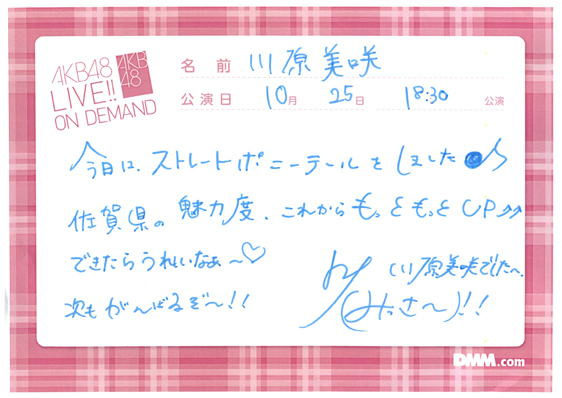 AKB48
LIVE!!
ON DEMAND
AKB
48
名前 川原美咲
公演日 10月 25日 18:30 公演
今日は、ストレートポニーテールをしました♪
佐賀県の魅力度、これからもっともっとUP↑↑
できたらうれしいなぁ〜♡
次もがんばるぞ〜!!
川原美咲でした〜
(みっさ〜)!!
DMM.com